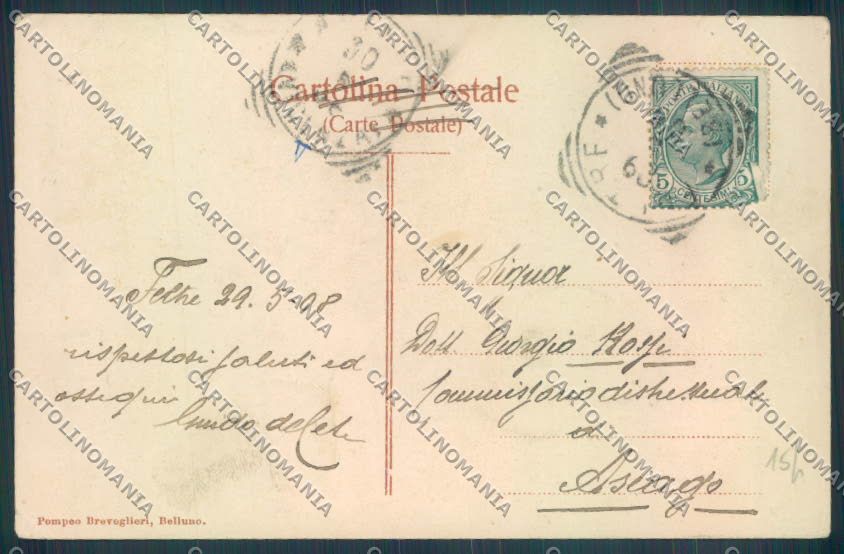 Cartolina Postale
(Carte Postale)
POSTE ITALIANE
5 CENTESIMI 5
Feltre 29.5.08
rispettosi saluti ed
ossequi
Guido
Ill Signor
Dott. Giorgio
Commissario distrettuale
a
Asiago
15
Pompeo Breveglieri, Belluno.
CARTOLINOMANIA